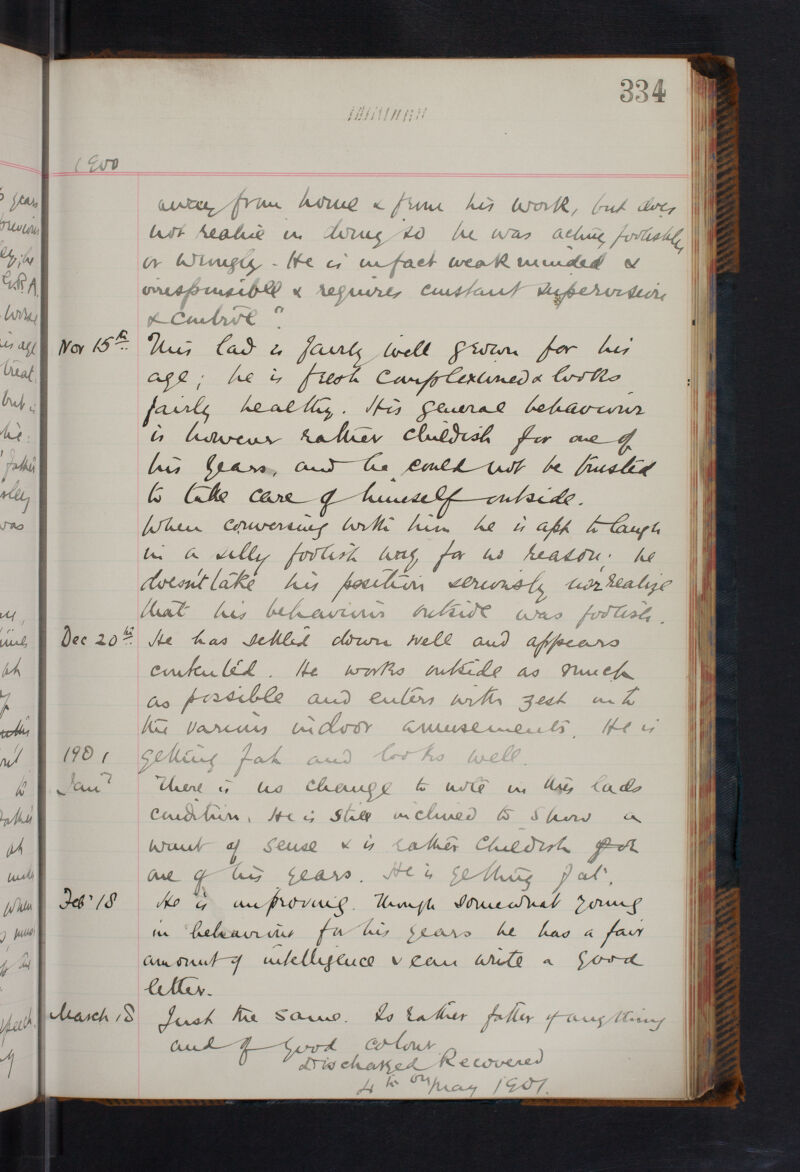 334
1900
away from home & from his work, but does
not realise in doing so he was acting foolishly
or wrongly - He is in fact weak minded &
irresponsible & requires constant supervision
& control".
Nov 15th. This lad is fairly well grown for his
age; he is fresh complexioned & looks
fairly healthy. His general behaviour
is however rather childish for one of
his years, and he could not be trusted
to take care of himself outside.
When conversing with him he is apt to laugh
in a silly foolish way for no reason. he
doesn't take his position seriously nor realize
that his behaviour outside was foolish.
Dec 20th. He has settled down well and appears
contented. He works outside as much
as possible and enters with zest into
the various indoor amusements. He is
1901 getting fat and looks well.
Jany There is no change to note in this lads
condition. He is still inclined to show a
want of sense & is rather childish for
one of his years. He is getting fat.
Feb 18 He is improving. Though somewhat young
in behaviour for his years he has a fair
amount of intelligence & can write a good
letter.
March 18 Just the same. Is rather fatter if anything
and of good colour
Discharged Recovered
4th May 1901.